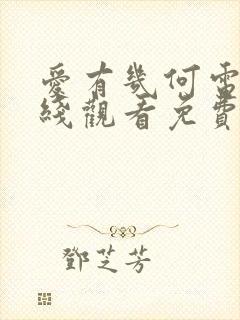 愛有幾何電
綫觀看免費
鄧芝芳